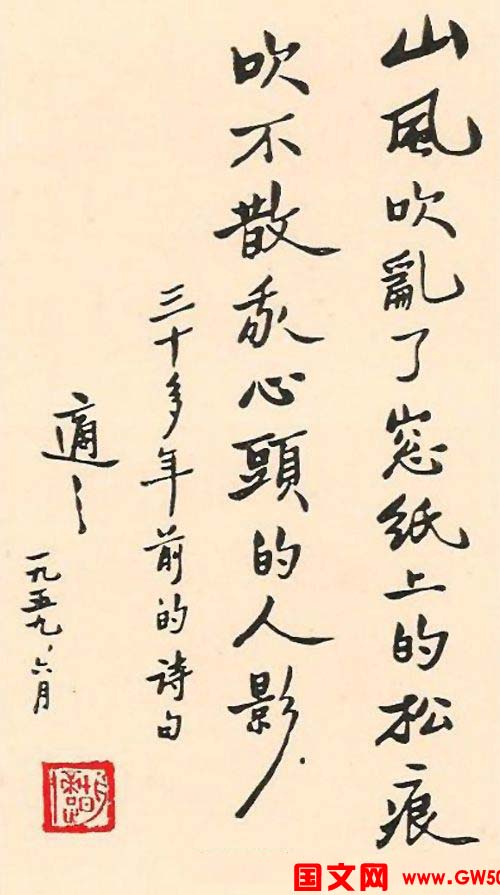 山風吹亂了窓紙上的松痕
吹不散我心頭的人影.
三十多年前的詩句
適之
一九五九、六月
国文网 www.GW50